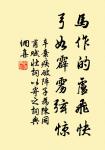 馬作的盧飛快
弓如霹靂弦惊
辛棄疾破陣子為陳同
甫賦壯詞以寄之詞典
網集